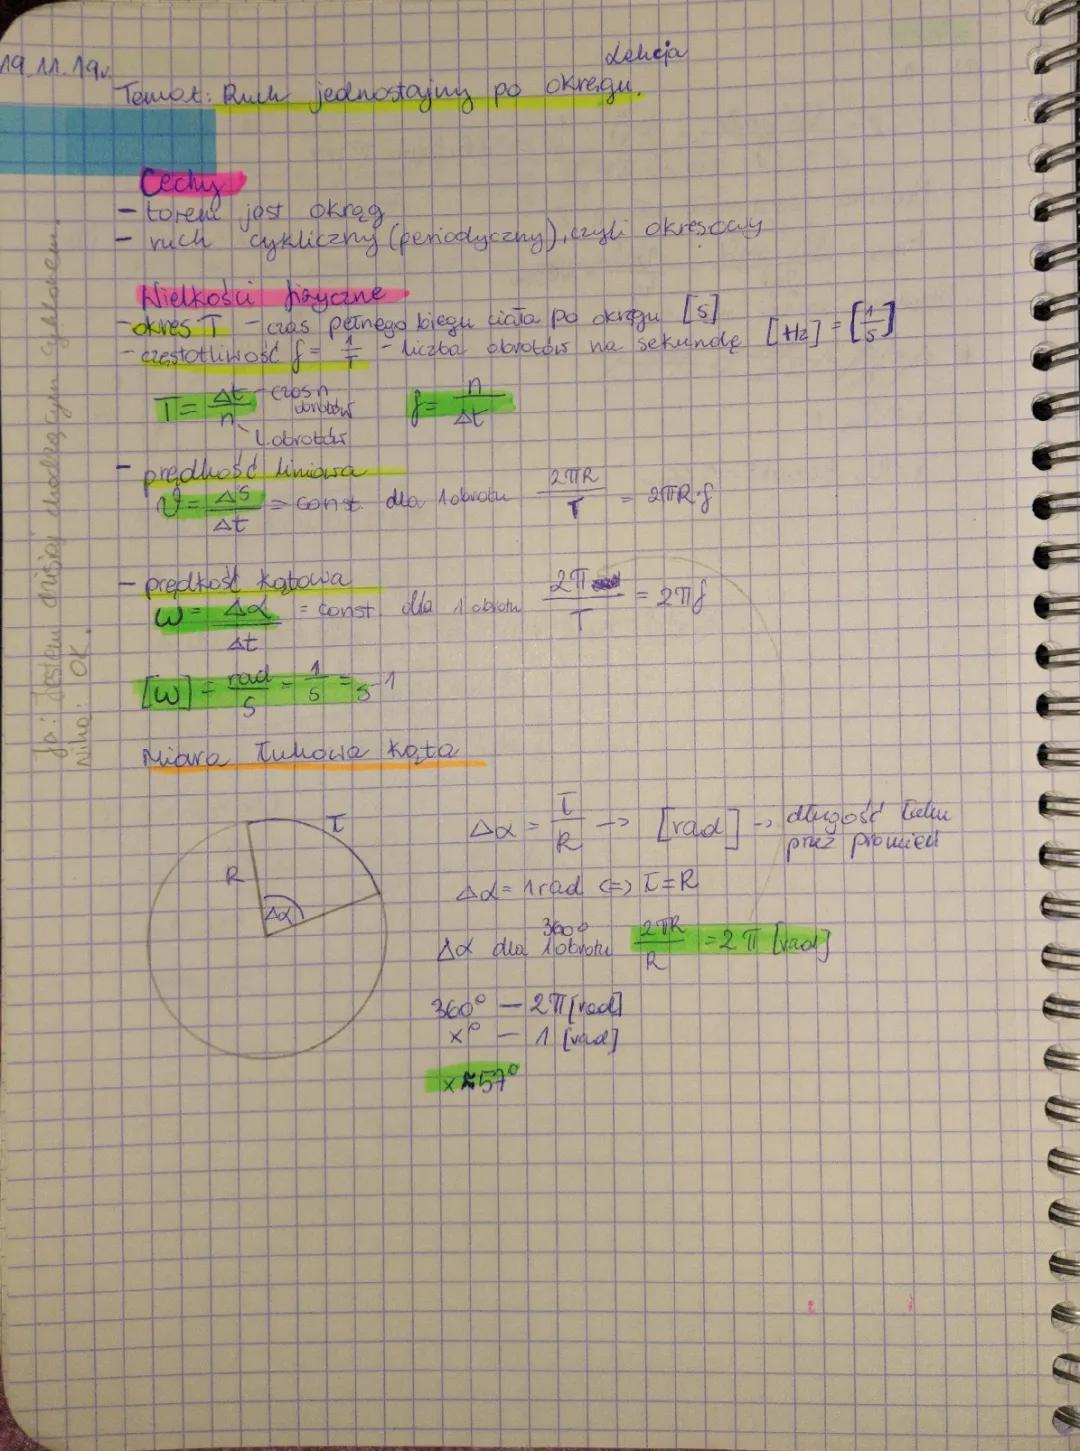 Lekcja
19.11.19r.
Temat: Ruch jednostajny po okręgu.
Cechy
- torem jest okrąg
- ruch cykliczny (periodyczny), czyli okresowy
Wielkości fizyczne
- okres T - czas pełnego biegu ciała po okręgu [s]
- częstotliwość f = 1/T - liczba obrotów na sekundę [Hz] = [1/s]
T = Δt/n czas n obrotów f = n/Δt
l. obrotów
- prędkość liniowa
v = Δs/Δt = const dla 1 obrotu 2πR/T = 2πR·f
- prędkość kątowa
ω = Δα/Δt = const dla 1 obrotu 2π/T = 2πf
[ω] = rad/s = 1/s = s⁻¹
Miara łukowa kąta
Ł
R
Δα
Δα = Ł/R → [rad] → długość łuku
przez promień
Δα = 1 rad ⇔ Ł = R
360°
Δα dla 1 obrotu 2πR/R = 2π [rad]
360° — 2π [rad]
x° — 1 [rad]
x ≈ 57°
Ja: Jestem dzisiaj chodzącym cyklonem.
Niko: OK.